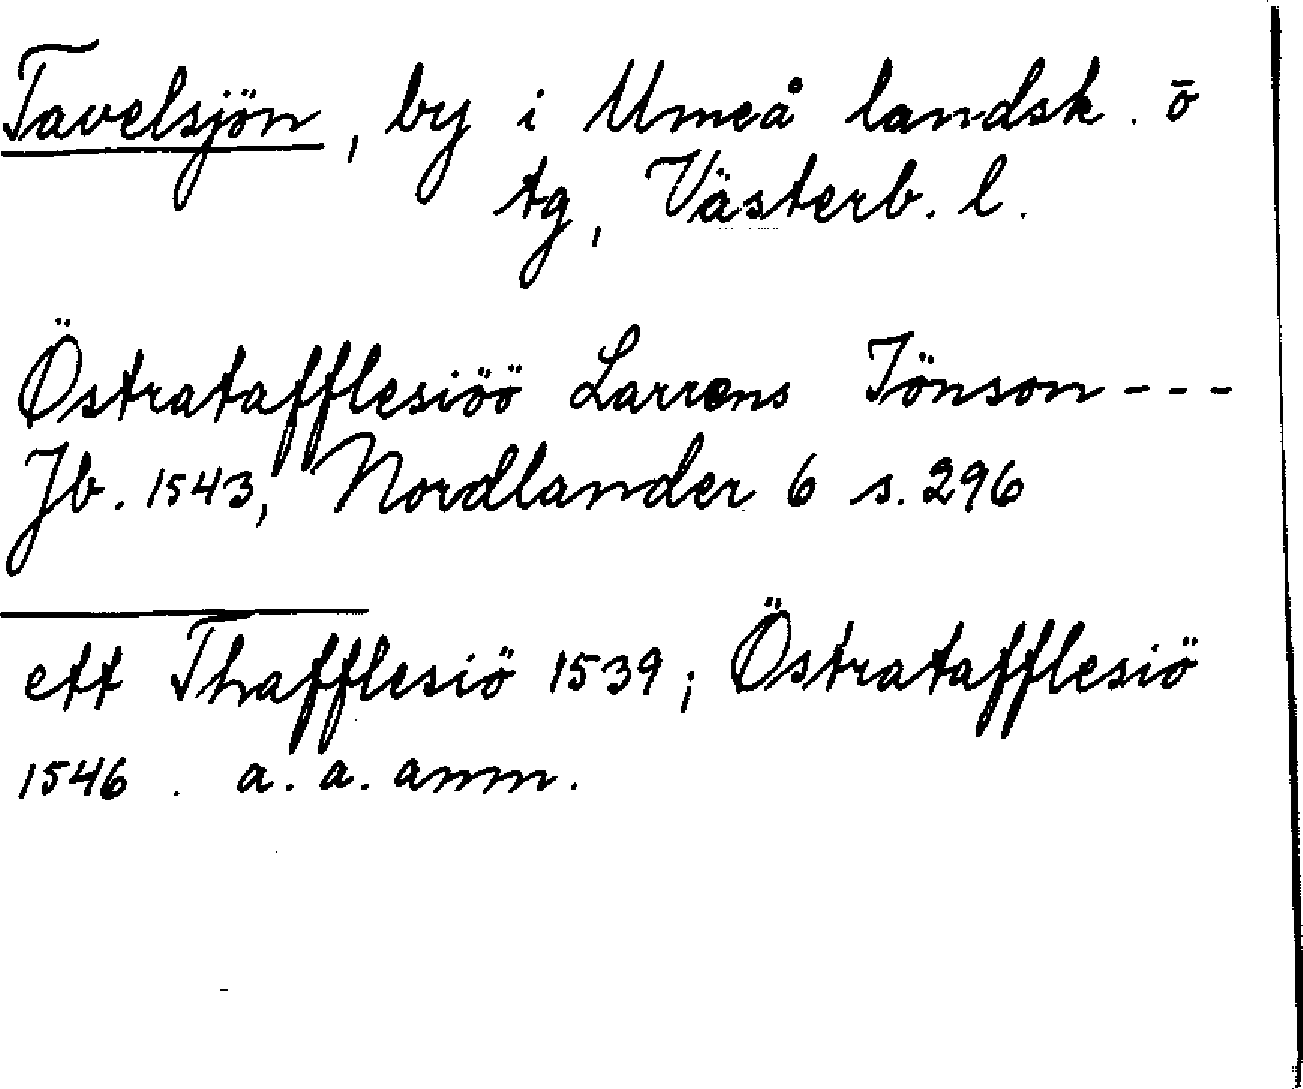 Tavelsjön, by i Umeå landsk. ō
tg, Västerb. l.
Östratafflesiöö Larrens Jönson - - -
Jb. 1543, Nordlander 6 s. 296
ett Thafflesiö 1539; Östratafflesiö
1546. a. a. anm.